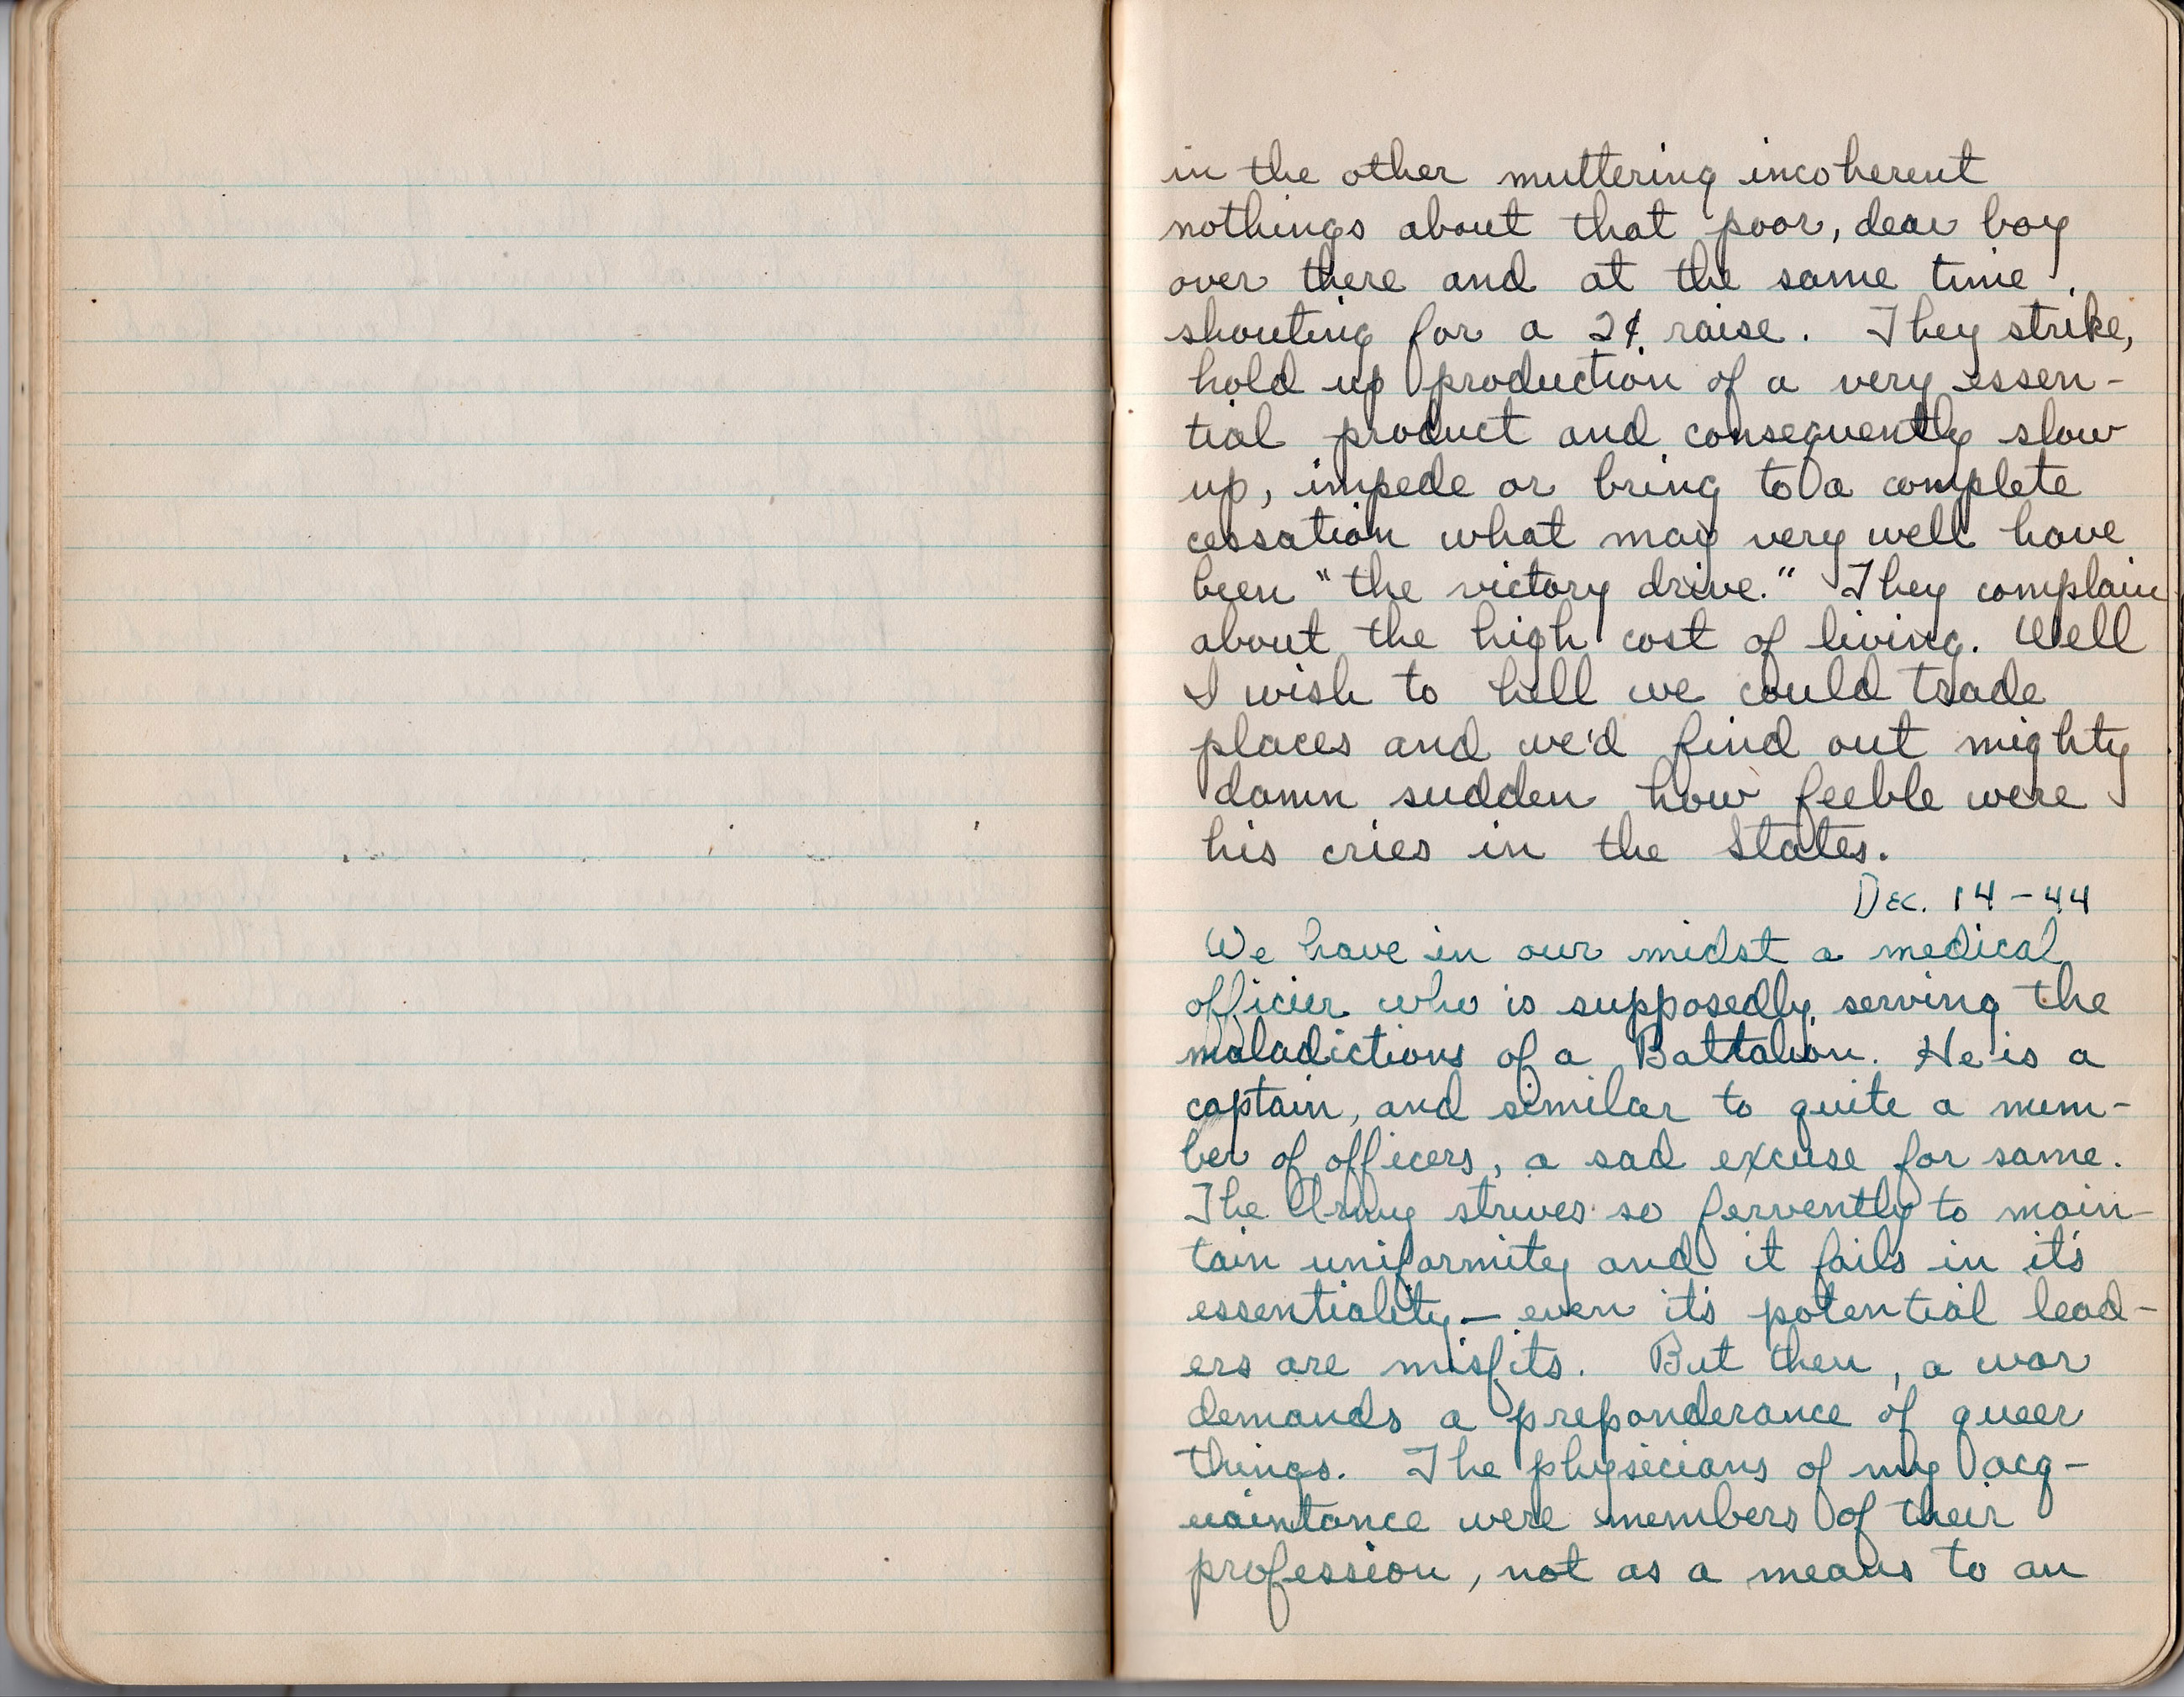 in the other muttering incoherent
nothings about that poor, dear boy
over there and at the same time
shouting for a 2¢ raise. They strike,
hold up production of a very essen-
tial product and consequently slow
up, impede or bring to a complete
cessation what may very well have
been "the victory drive." They complain
about the high cost of living. Well
I wish to hell we could trade
places and we'd find out mighty
damn sudden how feeble were
his cries in the States.
Dec. 14-44
We have in our midst a medical
officier who is supposedly serving the
maladictions of a Battalion. He is a
captain, and similar to quite a num-
ber of officers, a sad excuse for same.
The Army strives so fervently to main-
tain uniformity and it fails in it's
essentiality – even it's potential lead-
ers are misfits. But then, a war
demands a preponderance of queer
things. The physicians of my acq-
uaintance were members of their
profession, not as a means to an